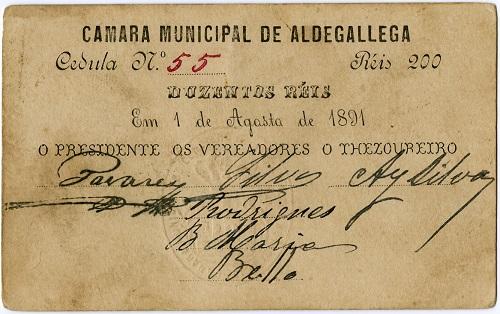 CAMARA MUNICIPAL DE ALDEGALLEGA
Cedula N.º 55 Réis 200
DUZENTOS RÉIS
Em 1 de Agosto de 1891
O PRESIDENTE OS VEREADORES O THEZOUREIRO
Tavares Silva AySilva
Rodrigues
B Maria
Bello